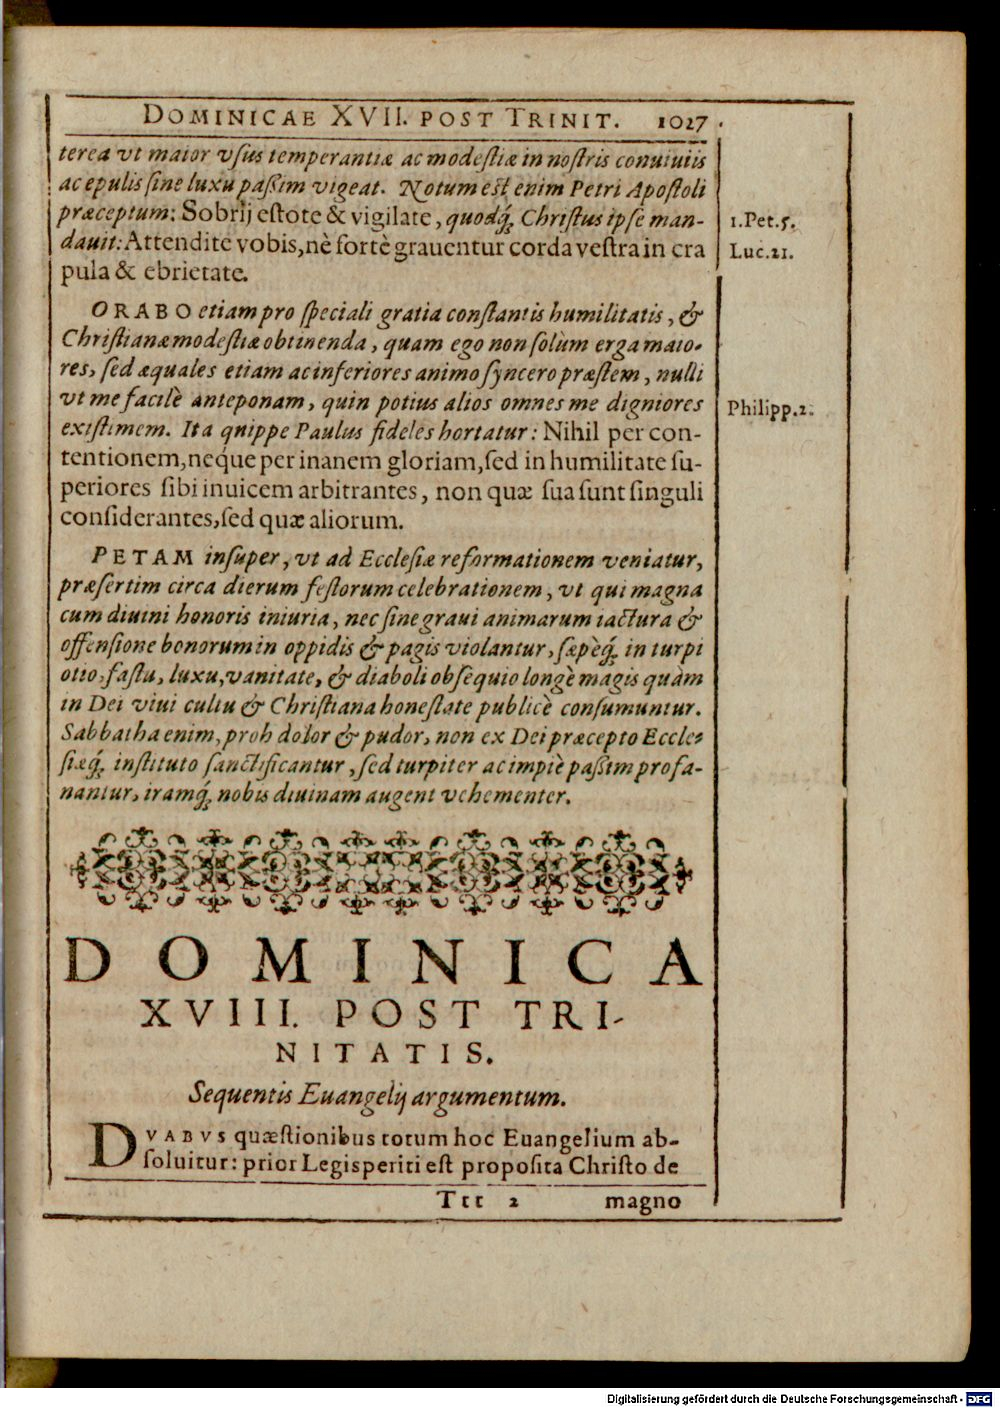 DOMINICAE XVII. POST TRINIT. 1027
terea vt maior vſus temperantiæ ac modeſtiæ in noſtris conuiuiis
ac epulis ſine luxu paßim vigeat. Notum est enim Petri Apoſtoli
præceptum: Sobrij eſtote & vigilate, quodq́; Chriſtus ipſe man-
dauit: Attendite vobis, nè fortè grauentur corda veſtra in cra
pula & ebrietate.
1. Pet. 5.
Luc. 21.
ORABO etiam pro ſpeciali gratia conſtantis humilitatis, &
Chriſtianæ modeſtiæ obtinenda, quam ego non ſolùm erga maio-
res, ſed æquales etiam ac inferiores animo ſyncero præſtem, nulli
vt me facilè anteponam, quin potius alios omnes me digniores
exiſtimem. Ita quippe Paulus fideles hortatur: Nihil per con-
tentionem, neque per inanem gloriam, ſed in humilitate ſu-
periores ſibi inuicem arbitrantes, non quæ ſua ſunt ſinguli
conſiderantes, ſed quæ aliorum.
Philipp. 2.
PETAM inſuper, vt ad Eccleſiæ reformationem veniatur,
præſertim circa dierum feſtorum celebrationem, vt qui magna
cum diuini honoris iniuria, nec ſine graui animarum iactura &
offenſione bonorum in oppidis & pagis violantur, ſæpèq́; in turpi
otio, faſtu, luxu, vanitate, & diaboli obſequio longè magis quàm
in Dei viui cultu & Chriſtiana honeſtate publicè conſumuntur.
Sabbatha enim, proh dolor & pudor, non ex Dei præcepto Eccle-
ſiæq́; inſtituto ſanctificantur, ſed turpiter ac impiè paßim profa-
nantur, iramq́; nobis diuinam augent vehementer.
DOMINICA
XVIII. POST TRI-
NITATIS.
Sequentis Euangelij argumentum.
DVABVS quæſtionibus totum hoc Euangelium ab-
ſoluitur: prior Legisperiti eſt propoſita Chriſto de
Ttt 2 magno
Digitalisierung gefördert durch die Deutsche Forschungsgemeinschaft - DFG